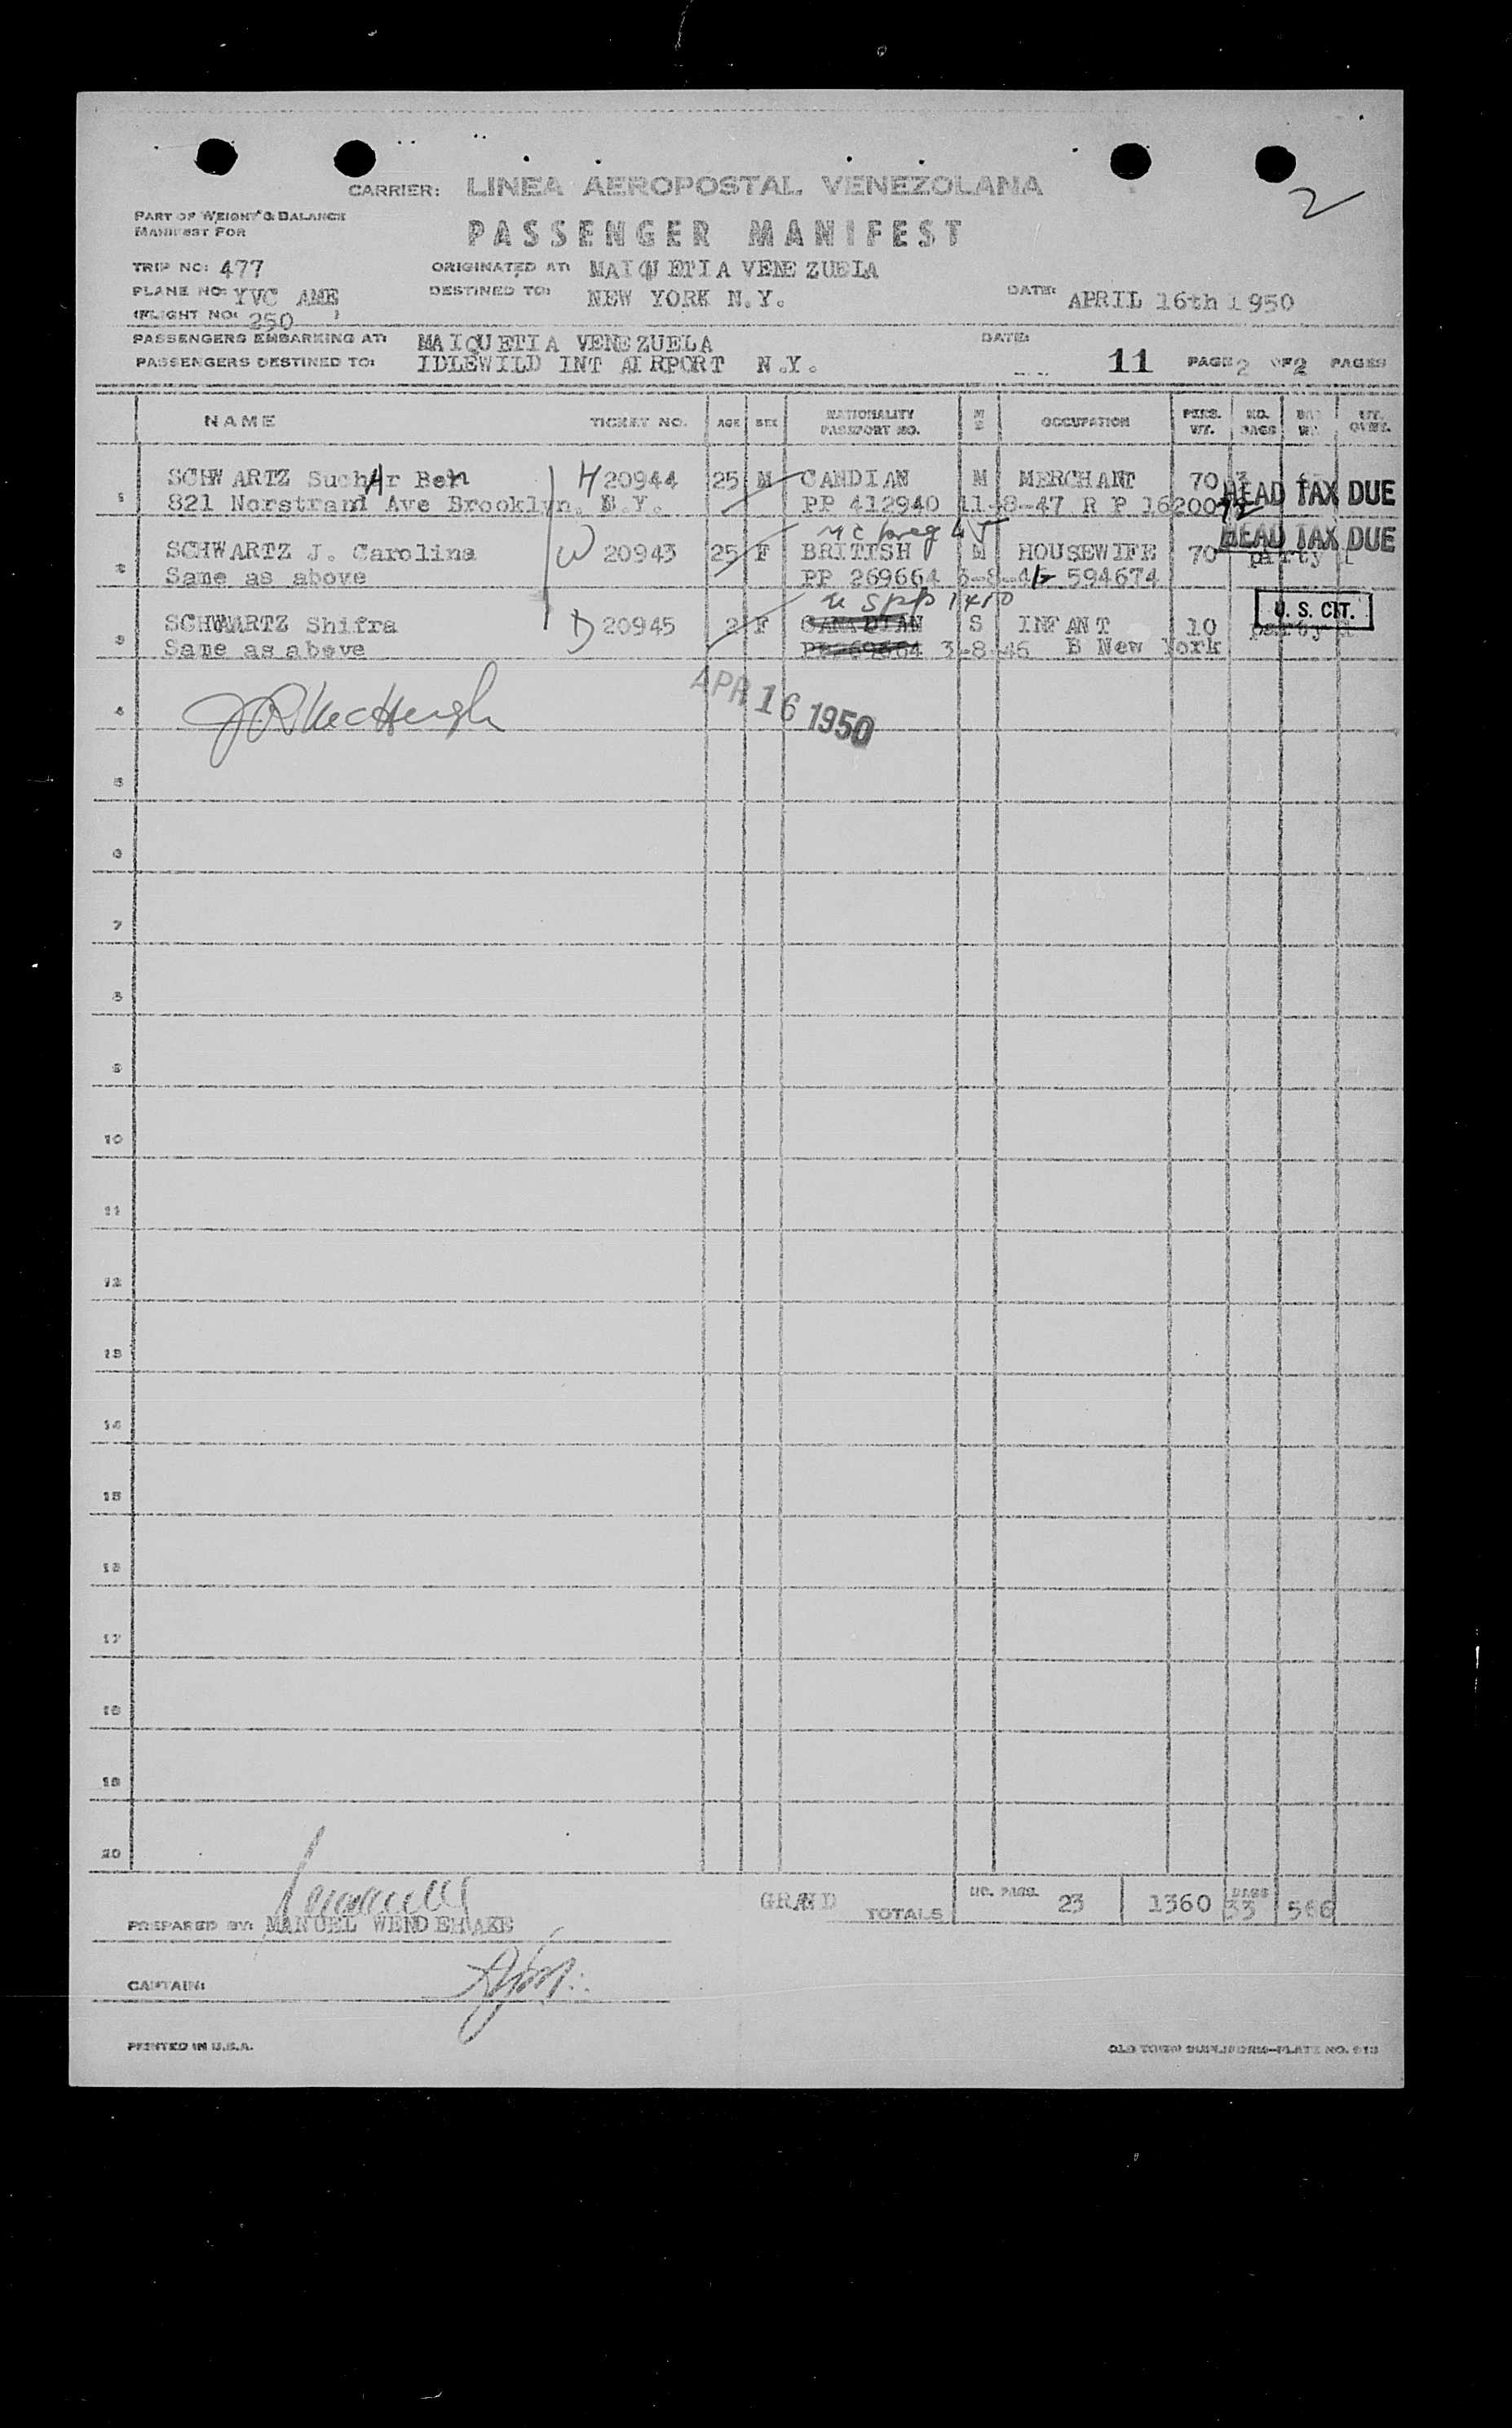 2
CARRIER: LINEA AEROPOSTAL VENEZOLANA
PART OF WEIGHT & BALANCE
MANIFEST FOR
PASSENGER MANIFEST
TRIP NO: 477 ORIGINATED AT: MAIQUETIA VENEZUELA
PLANE NO: YVC AME DESTINED TO: NEW YORK N.Y. DATE: APRIL 16th 1950
(FLIGHT NO: 250 )
PASSENGERS EMBARKING AT: MAIQUETIA VENEZUELA DATE:
PASSENGERS DESTINED TO: IDLEWILD INT AIRPORT N.Y. 11 PAGE 2 OF 2 PAGES
NAME TICKET NO. AGE SEX NATIONALITY PASSPORT NO. M S OCCUPATION PERS. WT. NO. BAGS
1 SCHWARTZ SuchAr Ben H 20944 25 M CANDIAN M MERCHANT 70 3
821 Norstrand Ave Brooklyn. N.Y. PP 412940 11-8-47 R P 1620092 HEAD TAX DUE
HEAD TAX DUE
2 SCHWARTZ J. Carolina W 20943 25 F BRITISH M HOUSEWIFE 70 party 1
Same as above PP 269664 594674
U. S. CIT.
3 SCHWARTZ Shifra D 20945 2 F CANADIAN S INFANT 10 party
Same as above PP269664 3-8-46 B New York
4
APR 16 1950
5
6
7
8
9
10
11
12
13
14
15
16
17
18
19
20
GRAND TOTALS NO. PASS. 23 1360 BAGS 33 566
PREPARED BY: MANUEL
CAPTAIN:
PRINTED IN U.S.A. OLD TOWN